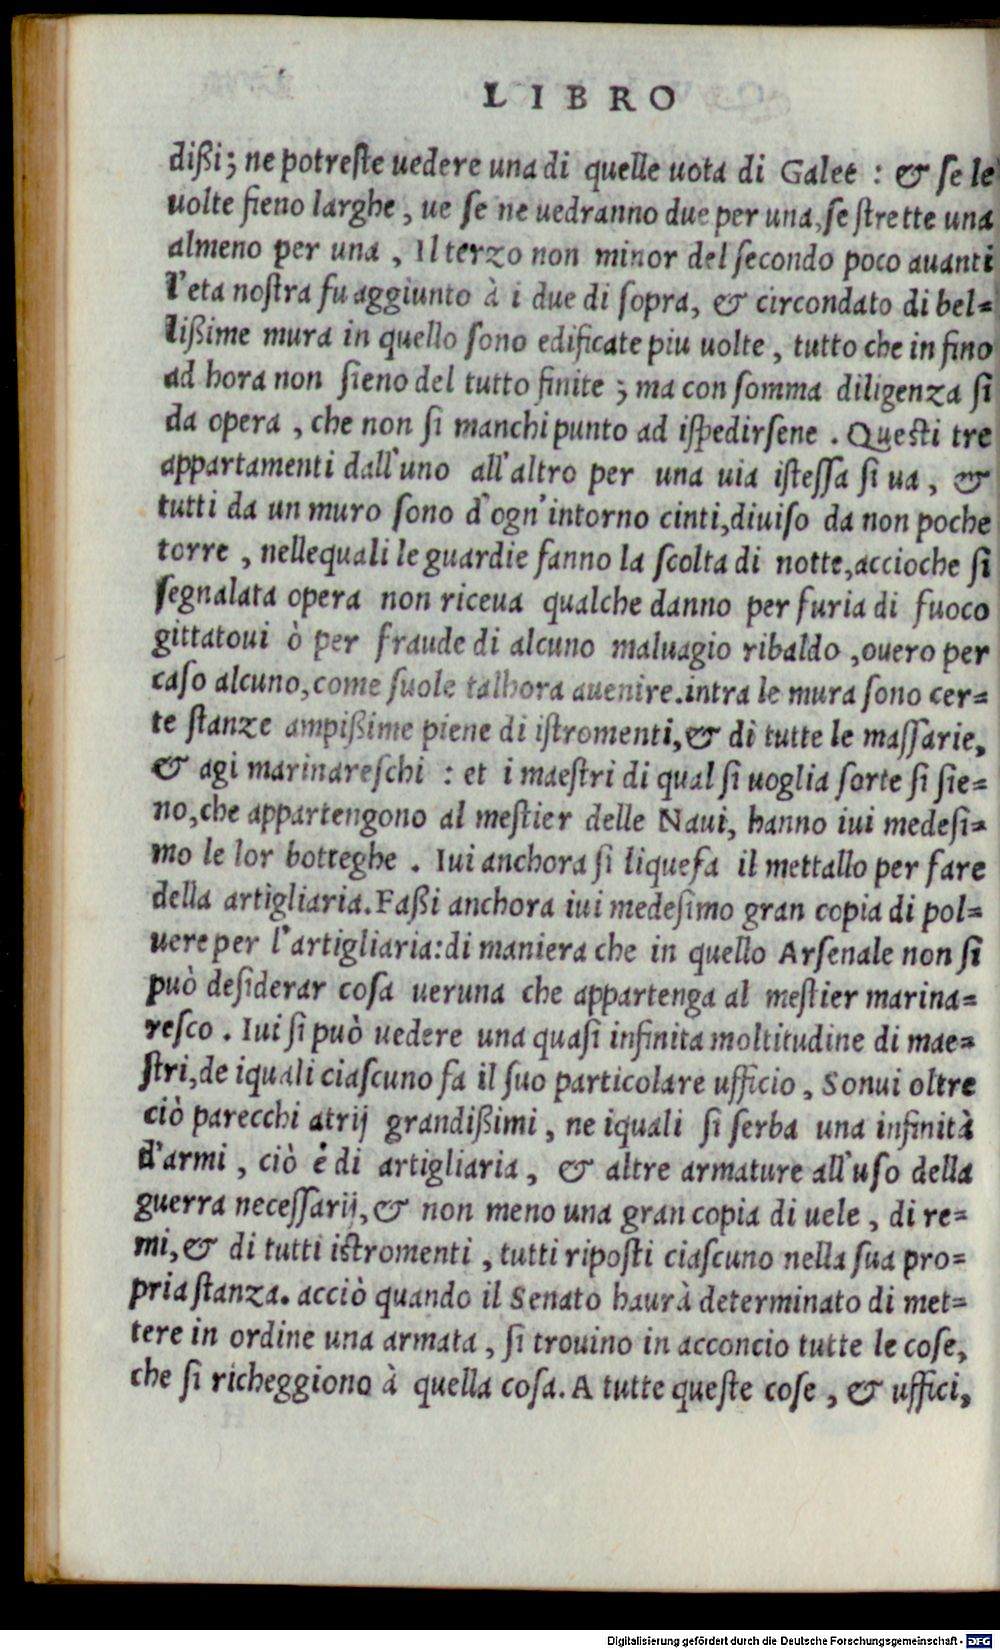 LIBRO
dißi; ne potreſte uedere una di quelle uota di Galee : & ſe le
uolte fieno larghe, ue ſe ne uedranno due per una, ſe ſtrette una
almeno per una, Il terzo non minor del ſecondo poco auanti
l'eta noſtra fu aggiunto à i due di ſopra, & circondato di bel=
lißime mura in quello ſono edificate piu uolte, tutto che in fino
ad hora non ſieno del tutto finite; ma con ſomma diligenza ſi
da opera, che non ſi manchi punto ad iſpedirſene. Queſti tre
appartamenti dall'uno all'altro per una uia iſteſſa ſi ua, &
tutti da un muro ſono d'ogn'intorno cinti, diuiſo da non poche
torre, nellequali le guardie fanno la ſcolta di notte, accioche ſi
ſegnalata opera non riceua qualche danno per furia di fuoco
gittatoui ò per fraude di alcuno maluagio ribaldo, ouero per
caſo alcuno, come ſuole talhora auenire. intra le mura ſono cer=
te ſtanze ampißime piene di iſtromenti, & di tutte le maſſarie,
& agi marinareſchi : et i maeſtri di qual ſi uoglia ſorte ſi ſie=
no, che appartengono al meſtier delle Naui, hanno iui medeſi=
mo le lor botteghe. Iui anchora ſi liquefa il mettallo per fare
della artigliaria. Faßi anchora iui medeſimo gran copia di pol=
uere per l'artigliaria: di maniera che in quello Arſenale non ſi
può deſiderar coſa ueruna che appartenga al meſtier marina=
reſco. Iui ſi può uedere una quaſi infinita moltitudine di mae=
ſtri, de iquali ciaſcuno fa il ſuo particolare ufficio, Sonui oltre
ciò parecchi atrij grandißimi, ne iquali ſi ſerba una infinità
d'armi, ciò è di artigliaria, & altre armature all'uſo della
guerra neceſſarij, & non meno una gran copia di uele, di re=
mi, & di tutti iſtromenti, tutti ripoſti ciaſcuno nella ſua pro=
pria ſtanza. acciò quando il Senato haurà determinato di met=
tere in ordine una armata, ſi trouino in acconcio tutte le coſe,
che ſi richeggiono à quella coſa. A tutte queſte coſe, & uffici,
Digitalisierung gefördert durch die Deutsche Forschungsgemeinschaft - DFG